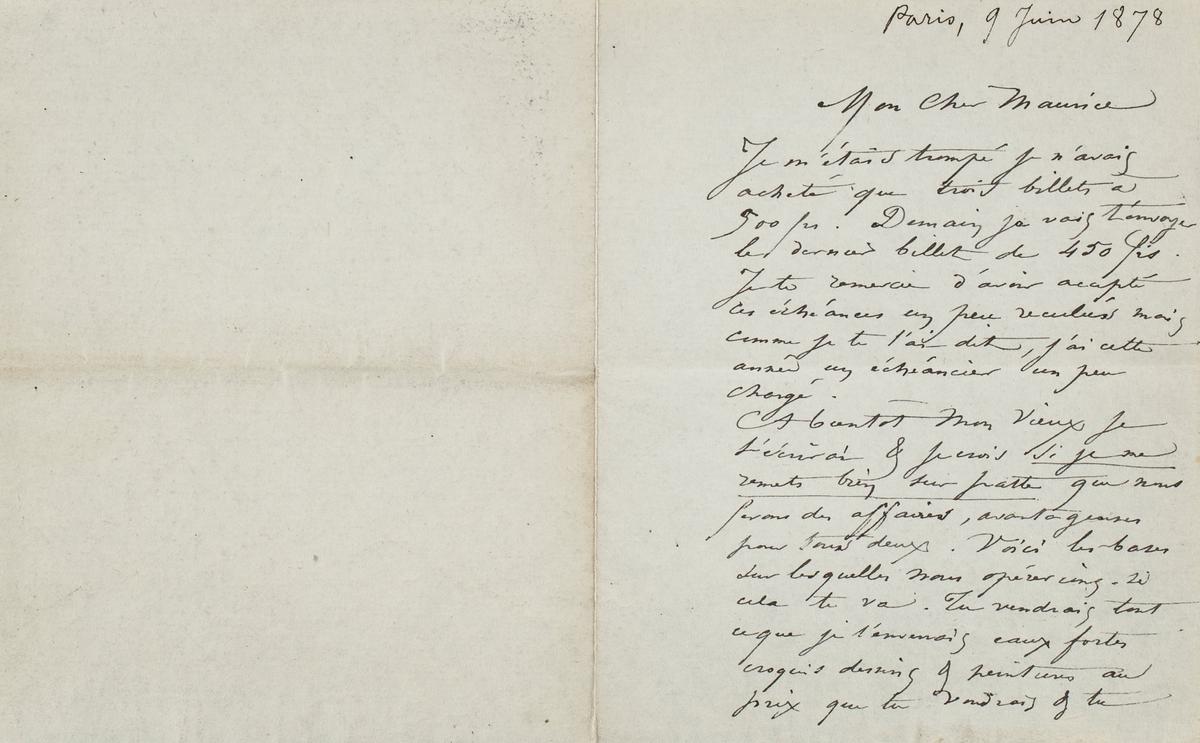 Paris, 9 Juin 1878
Mon Cher Maurice
Je m'étais trompé je n'avais
acheté que trois billets à
500 frs. Demain je vais t'envoyer
le dernier billet de 450 frs.
Je te remercie d'avoir accepté
ces échéances un peu reculées mais
comme je te l'ai dit, j'ai cette
année un échéancier un peu
chargé.
A bientôt Mon Vieux je
t'écrirai & je crois si je me
remets bien sur patte que nous
ferons des affaires, avantageuses
pour tous deux. Voici les bases
sur lesquelles nous opérerions. si
cela te va. Tu vendrais tout
ce que je t'enverrais eaux fortes
croquis dessins & peintures au
prix que tu voudrais & tu